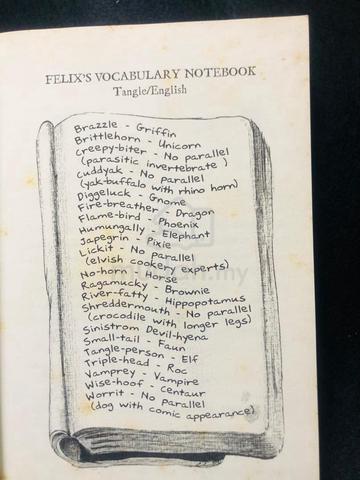 FELIX'S VOCABULARY NOTEBOOK
Tangle/English
Brazzle - Griffin
Brittlehorn - Unicorn
Creepy-biter - No parallel
(parasitic invertebrate)
Cuddyak - No parallel
(yak-buffalo with rhino horn)
Diggeluck - Gnome
Fire-breather - Dragon
Flame-bird - Phoenix
Humungally - Elephant
Japegrin - Pixie
Lickit - No parallel
(elvish cookery experts)
No-horn - Horse
Ragamucky - Brownie
River-fatty - Hippopotamus
Shreddermouth - No parallel
(crocodile with longer legs)
Sinistrom Devil-hyena
Small-tail - Faun
Tangle-person - Elf
Triple-head - Roc
Vamprey - Vampire
Wise-hoof - Centaur
Worrit - No parallel
(dog with comic appearance)